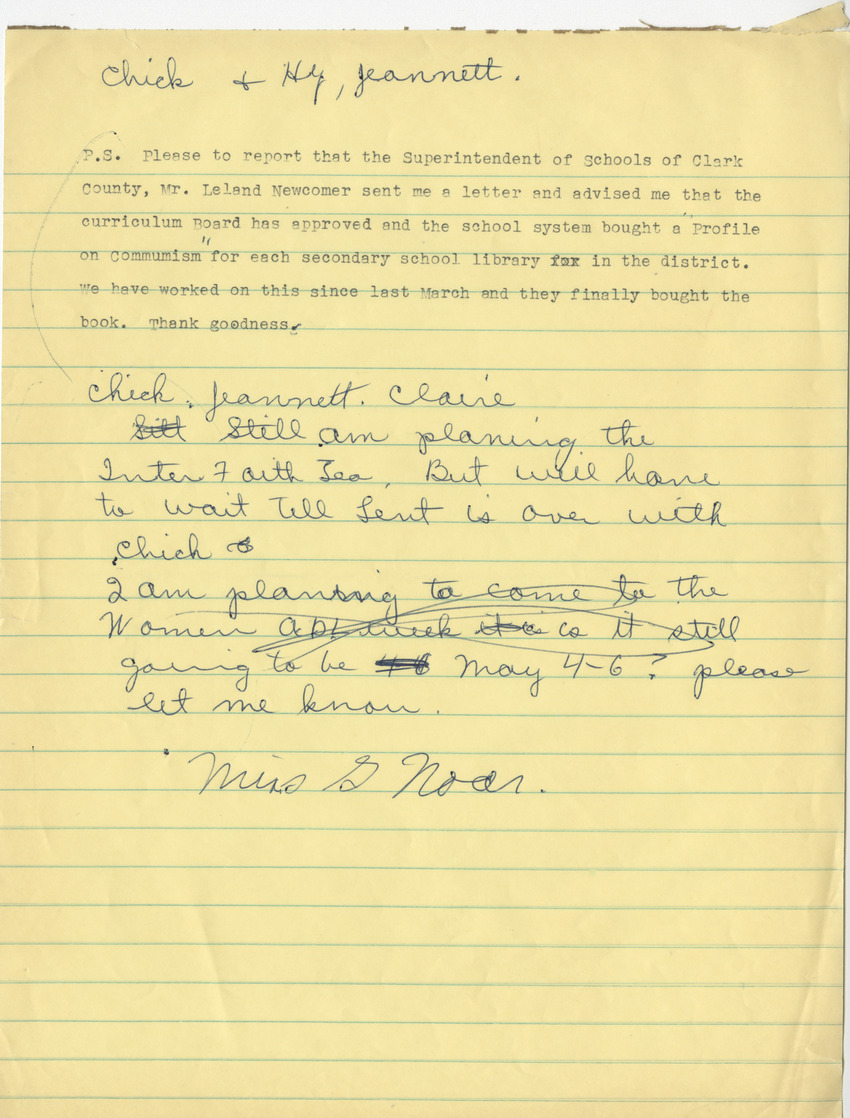 Chick & Hy, Jeannett.
P.S. Please to report that the Superintendent of Schools of Clark
County, Mr. Leland Newcomer sent me a letter and advised me that the
curriculum Board has approved and the school system bought a "Profile
on Commumism" for each secondary school library fox in the district.
We have worked on this since last March and they finally bought the
book. Thank goodness.
Chick. Jeannett. Claire
Sitt Still am planing the
Inter Faith Tea, But will have
to wait Till Lent is over with
Chick
I am planning to come to the
Women ADL week it is is it still
going to be May 4-6? please
let me know.
Miss G Noar.